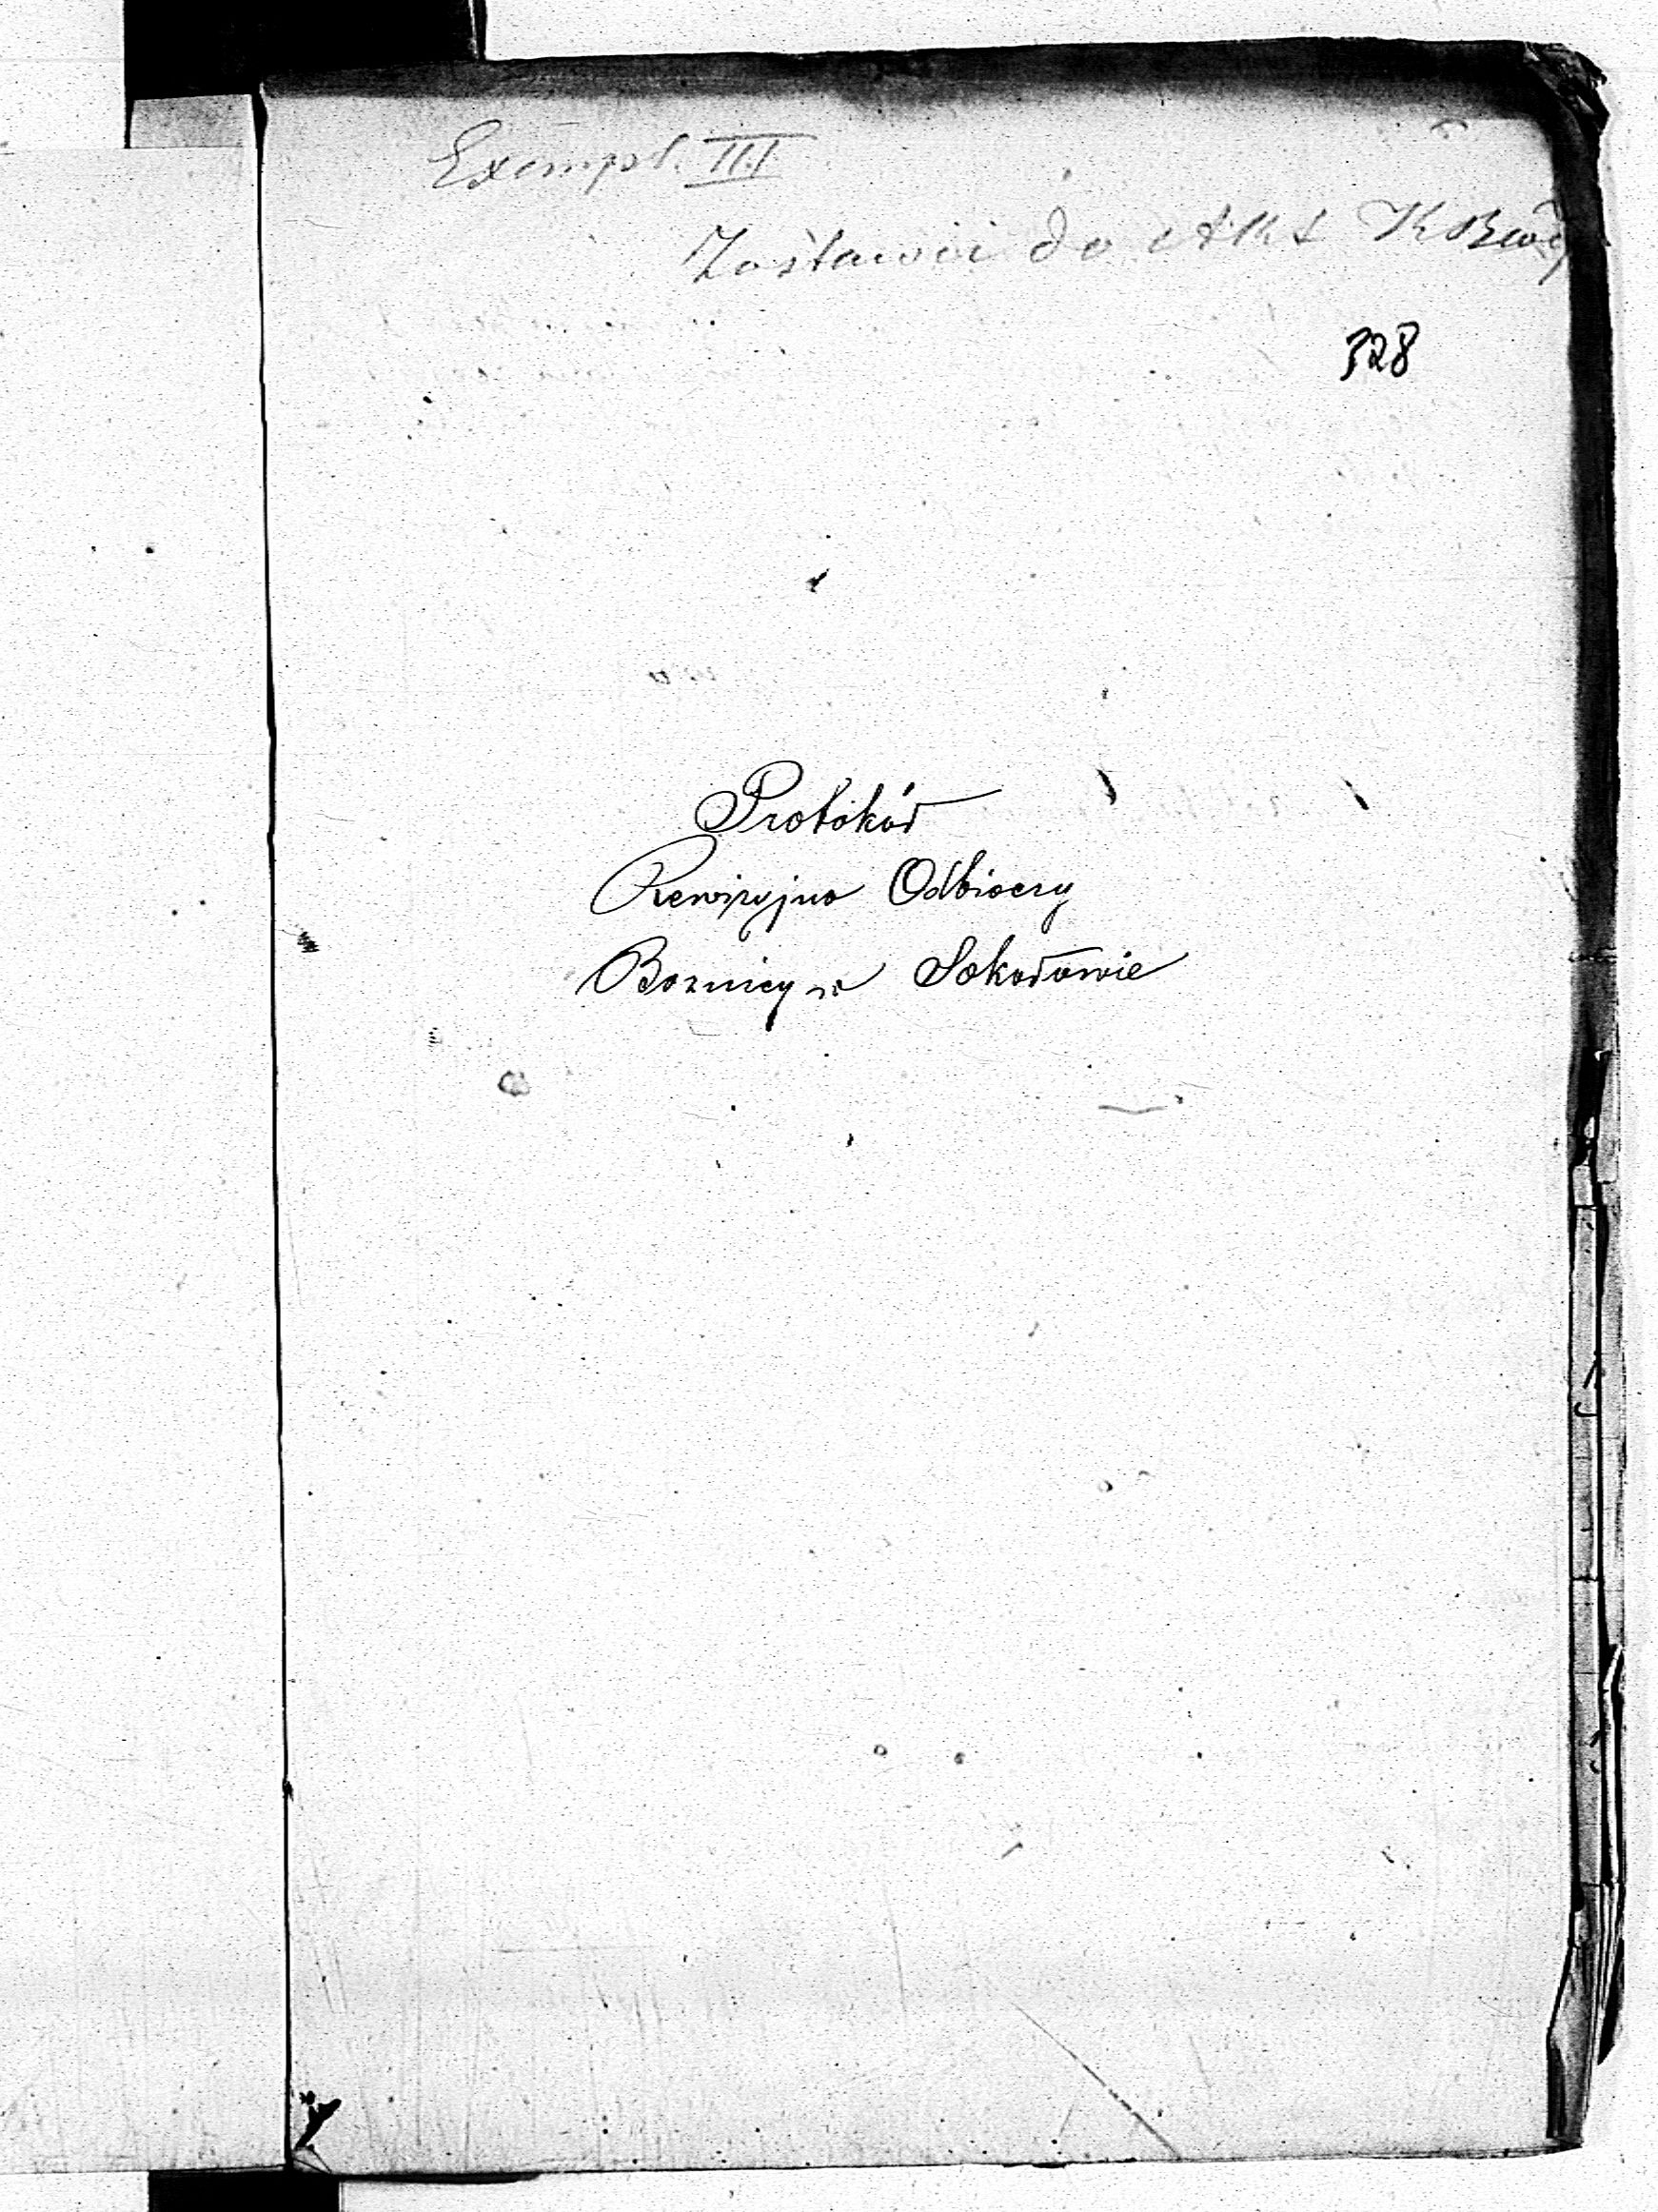 Exempl. III
Zostawić do Akt
328
Protokół
Rewizyjno Odbiorczy
Boznicy w Sokołowie